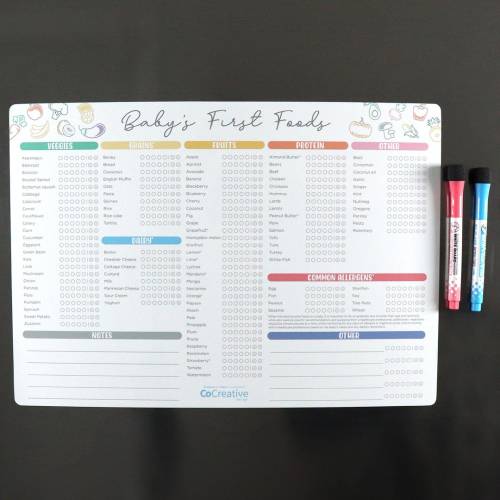 Baby's First Foods
VEGGIES
Asparagus
Beetroot
Broccoli
Brussel Sprout
Butternut Squash
Cabbage
Capsicum
Carrot
Cauliflower
Celery
Corn
Cucumber
Eggplant
Green Bean
Kale
Leek
Mushroom
Onion
Parsnip
Peas
Pumpkin
Spinach
Sweet Potato
Zucchini
GRAINS
Barley
Bread
Couscous
English Muffin
Oats
Pasta
Quinoa
Rice
Rice cake
Tortilla
DAIRY
Butter
Cheddar Cheese
Cottage Cheese
Custard
Milk
Parmesan Cheese
Sour Cream
Yoghurt
FRUITS
Apple
Apricot
Avocado
Banana
Blackberry
Blueberry
Cherry
Coconut
Fig
Grape
Grapefruit*
Honeydew melon
Kiwifruit
Lemon*
Lime*
Lychee
Mandarin*
Mango
Nectarine
Orange*
Papaya
Peach
Pear
Pineapple
Plum
Prune
Raspberry
Rockmelon
Strawberry*
Tomato
Watermelon
PROTEIN
Almond Butter*
Beans
Beef
Chicken
Chickpea
Hummus
Lamb
Lentils
Peanut Butter*
Pork
Salmon
Tofu
Tuna
Turkey
White Fish
OTHER
Basil
Cinnamon
Coconut oil
Garlic
Ginger
Mint
Nutmeg
Oregano
Parsley
Pesto
Rosemary
COMMON ALLERGENS*
Egg
Fish
Peanut
Sesame
Shellfish
Soy
Tree Nuts
Wheat
NOTES
OTHER
CoCreative